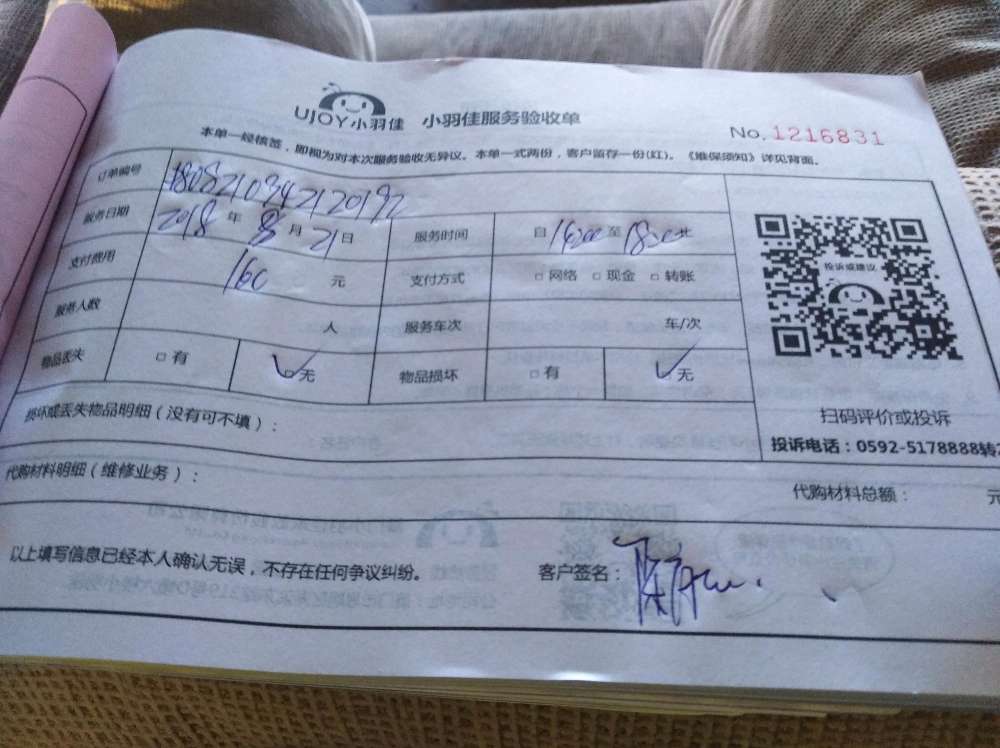 UJOY小羽佳 小羽佳服务验收单
No. 1216831
本单一经核签，即视为对本次服务验收无异议。本单一式两份，客户留存一份(红)。《维保须知》详见背面。
订单编号 1808210942120192
服务日期 2018 年 8 月 21 日 服务时间 自 16:00 至 18:00 止
支付费用 160 元 支付方式 □ 网络 □ 现金 □ 转账
服务人数 人 服务车次 车/次
物品丢失 □ 有 ✓□ 无 物品损坏 □ 有 ✓□ 无
投诉或建议
扫码评价或投诉
投诉电话：0592-5178888转2
损坏或丢失物品明细（没有可不填）：
代购材料明细（维修业务）： 代购材料总额： 元
以上填写信息已经本人确认无误，不存在任何争议纠纷。 客户签名：